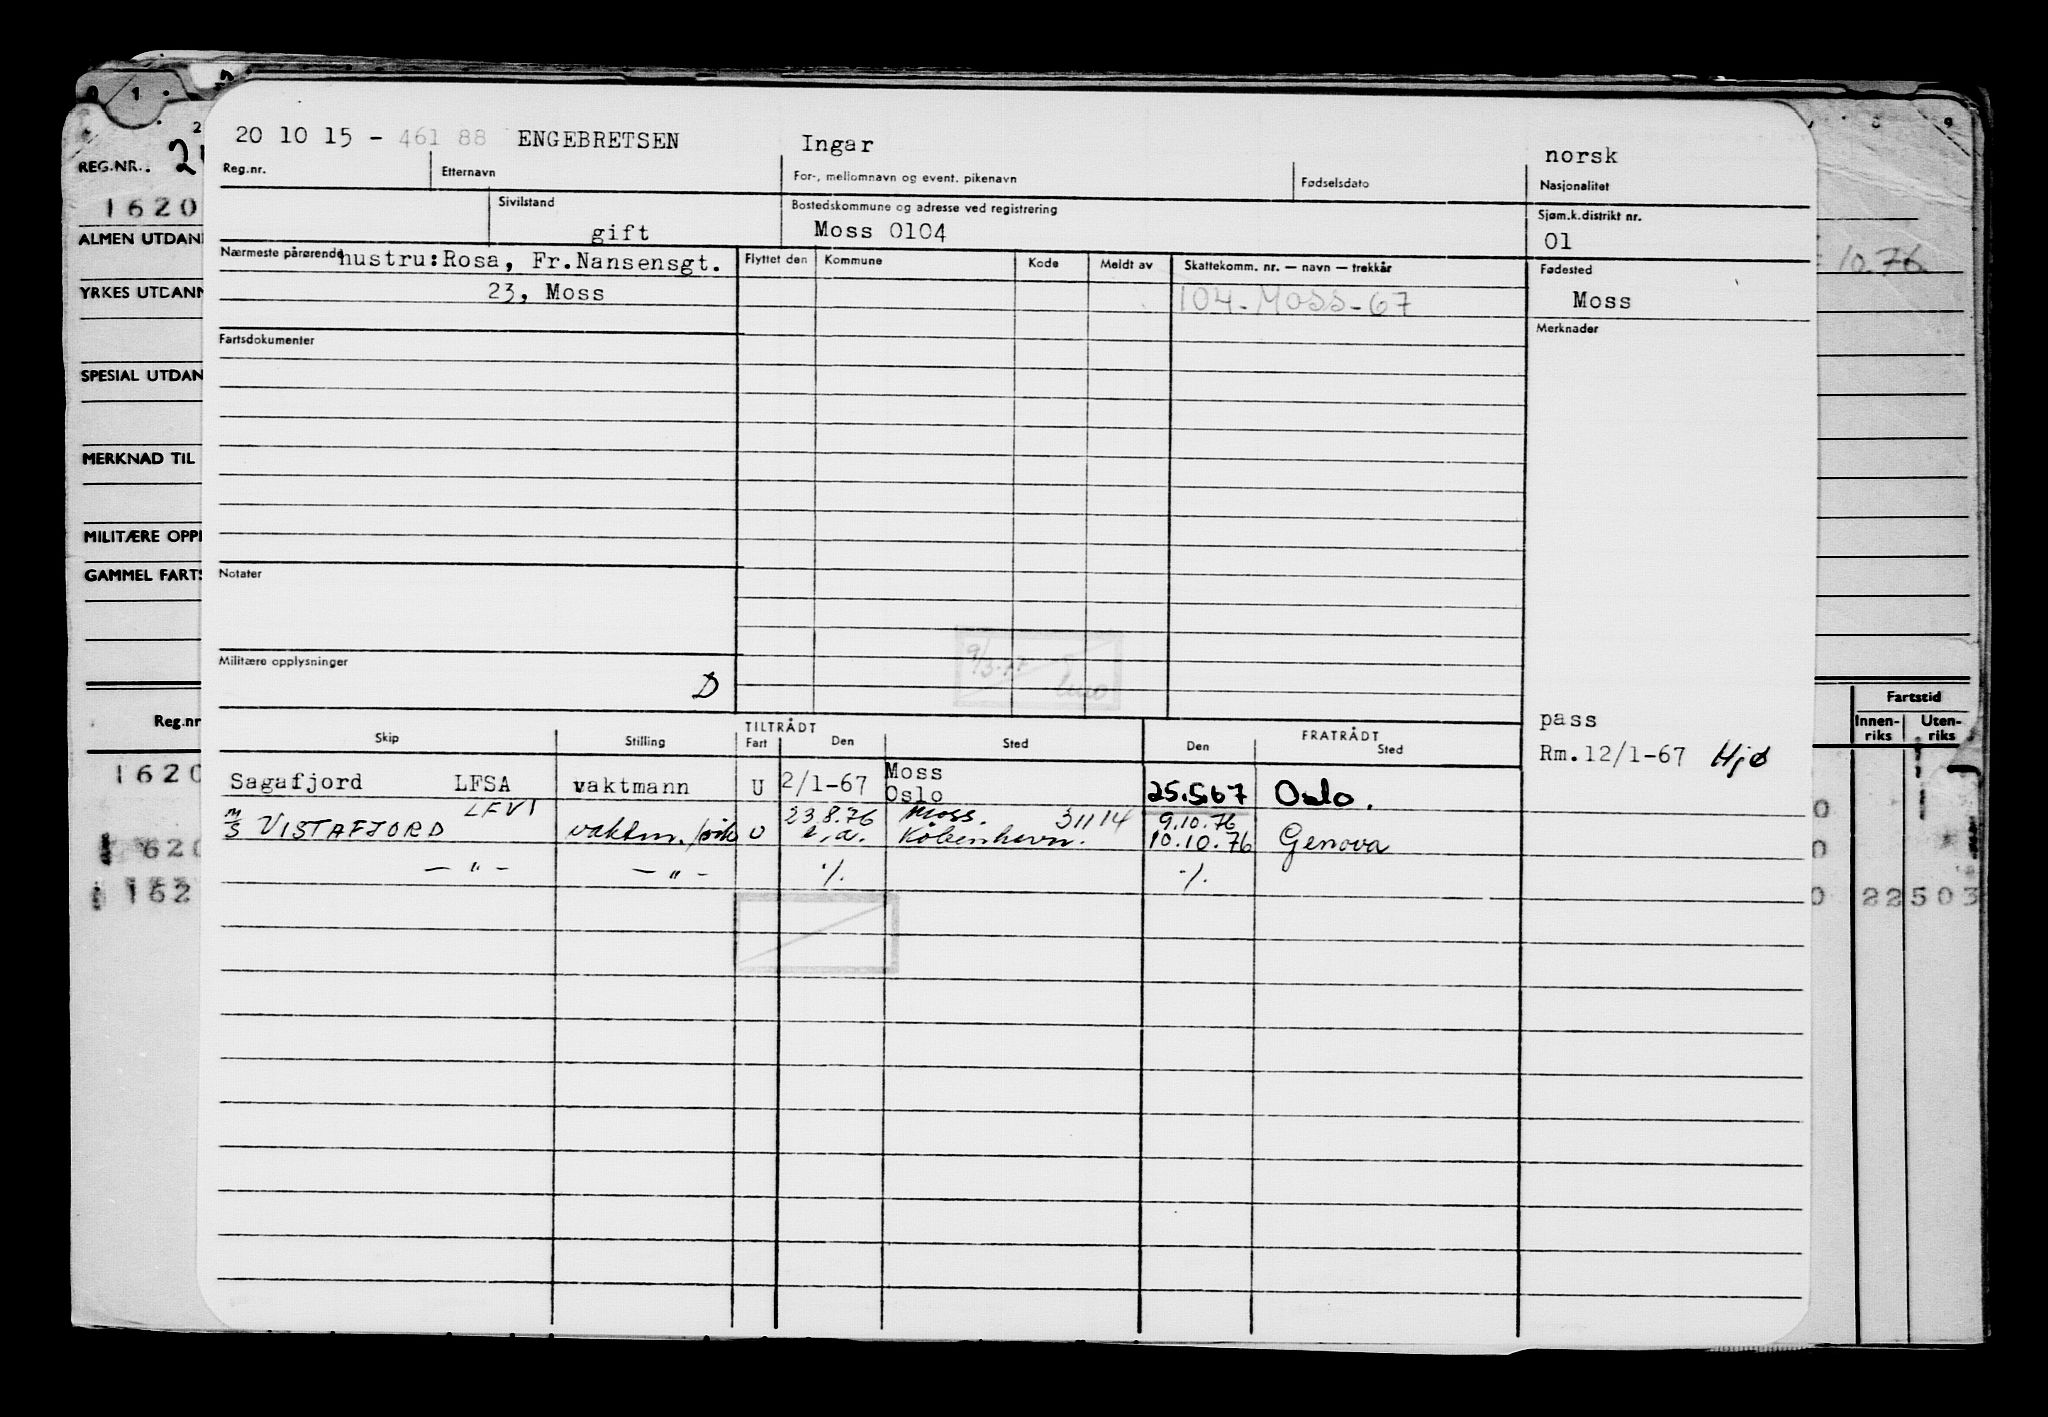 0 1 2 8 9
REG.NR.: 2
1620
ALMEN UTDAN
YRKES UTDANN
SPESIAL UTDAN
MERKNAD TIL
MILITÆRE OPPL
GAMMEL FARTS
Reg.nr
1620
620
162
20 10 15 - 461 88 ENGEBRETSEN Ingar norsk
Reg.nr. Etternavn For-, mellomnavn og event. pikenavn Fødselsdato Nasjonalitet
Sivilstand Bostedskommune og adresse ved registrering Sjøm.k.distrikt nr.
gift Moss 0104 01
Nærmeste pårørende hustru:Rosa, Fr.Nansensgt. Flyttet den Kommune Kode Meldt av Skattekomm. nr. — navn — trekkår Fødested
23, Moss 104-Moss-67 Moss
Fartsdokumenter Merknader
Notater
Militære opplysninger
D
pass
Rm.12/1-67 Hjø
TILTRÅDT FRATRÅDT
Skip Stilling Fart Den Sted Den Sted
Sagafjord LFSA vaktmann U 2/1-67 Moss Oslo 25.5.67 Oslo.
LFVI 23.8.76 Moss. 31114 9.10.76
M/S VISTAFJORD vaktm. U e.d. København. 10.10.76 Genova
— " — — " — ·/. ·/.
10.76
Fartstid
Innen-riks Uten-riks
0
0
0 22503